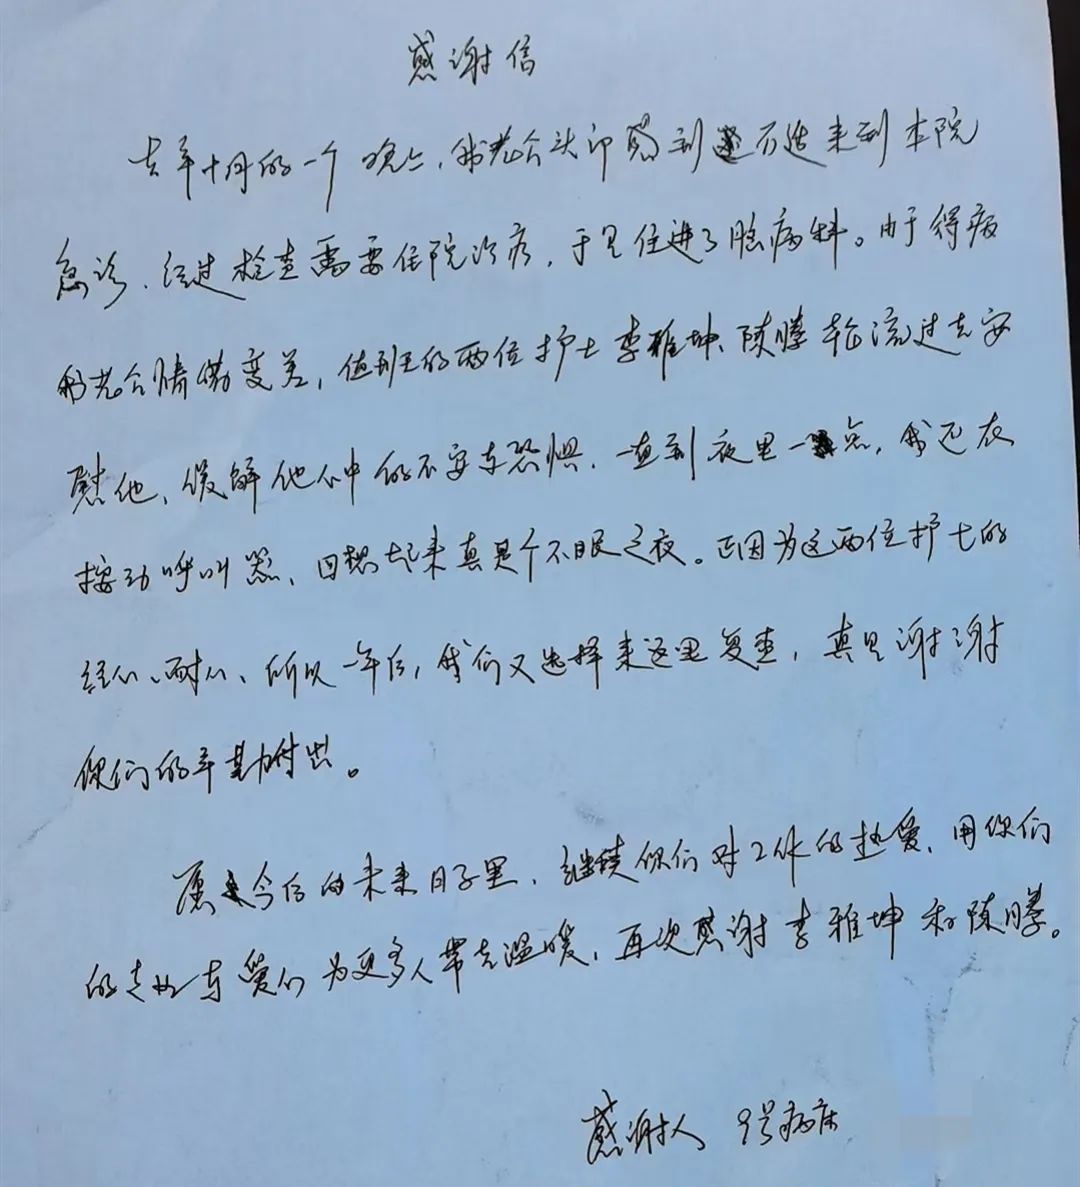 感谢信
去年十月的一个晚上，我老公头部感到不适来到本院
急诊、经过检查需要住院治疗，于是住进了脑病科。由于得病
我老公情绪变差，值班的两位护士李雅坤、陈腾轮流过去安
慰他、缓解他心中的不安与恐惧、一直到夜里一点，我还在
按动呼叫器、回想起来真是个不眠之夜。正因为这两位护士的
细心、耐心、所以一年后，我们又选择来这里复查，真是谢谢
你们的辛勤付出。
愿今后的未来日子里、继续你们对工作的热爱、用你们
的专业与爱心为更多人带去温暖，再次感谢李雅坤和陈腾。
感谢人 9号病床